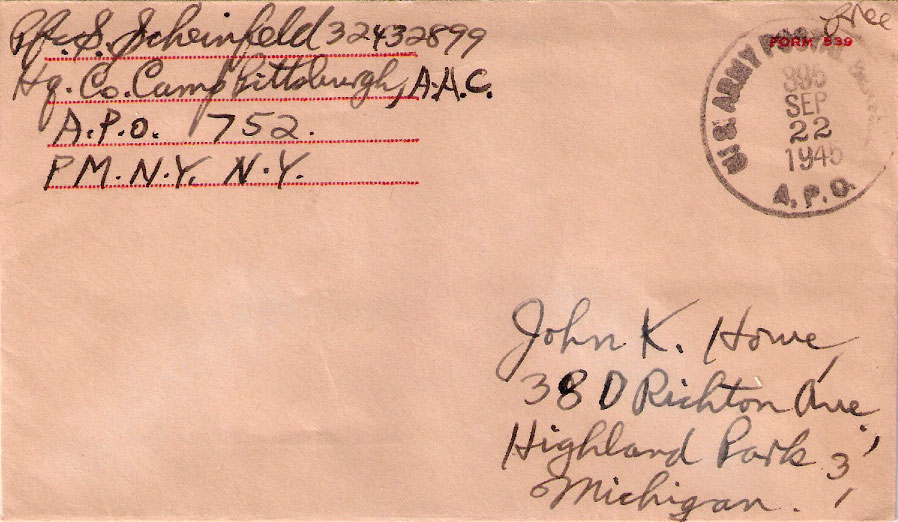 Pfc. S. Scheinfeld 32432899
Hq. Co. Camp Pittsburgh, A.A.C.
A.P.O. 752.
P.M. N.Y. N.Y.
Free
FORM 539
U.S. ARMY
895
SEP
22
1945
A.P.O.
John K. Howe,
38 D Richton Ave,
Highland Park 3,
Michigan.